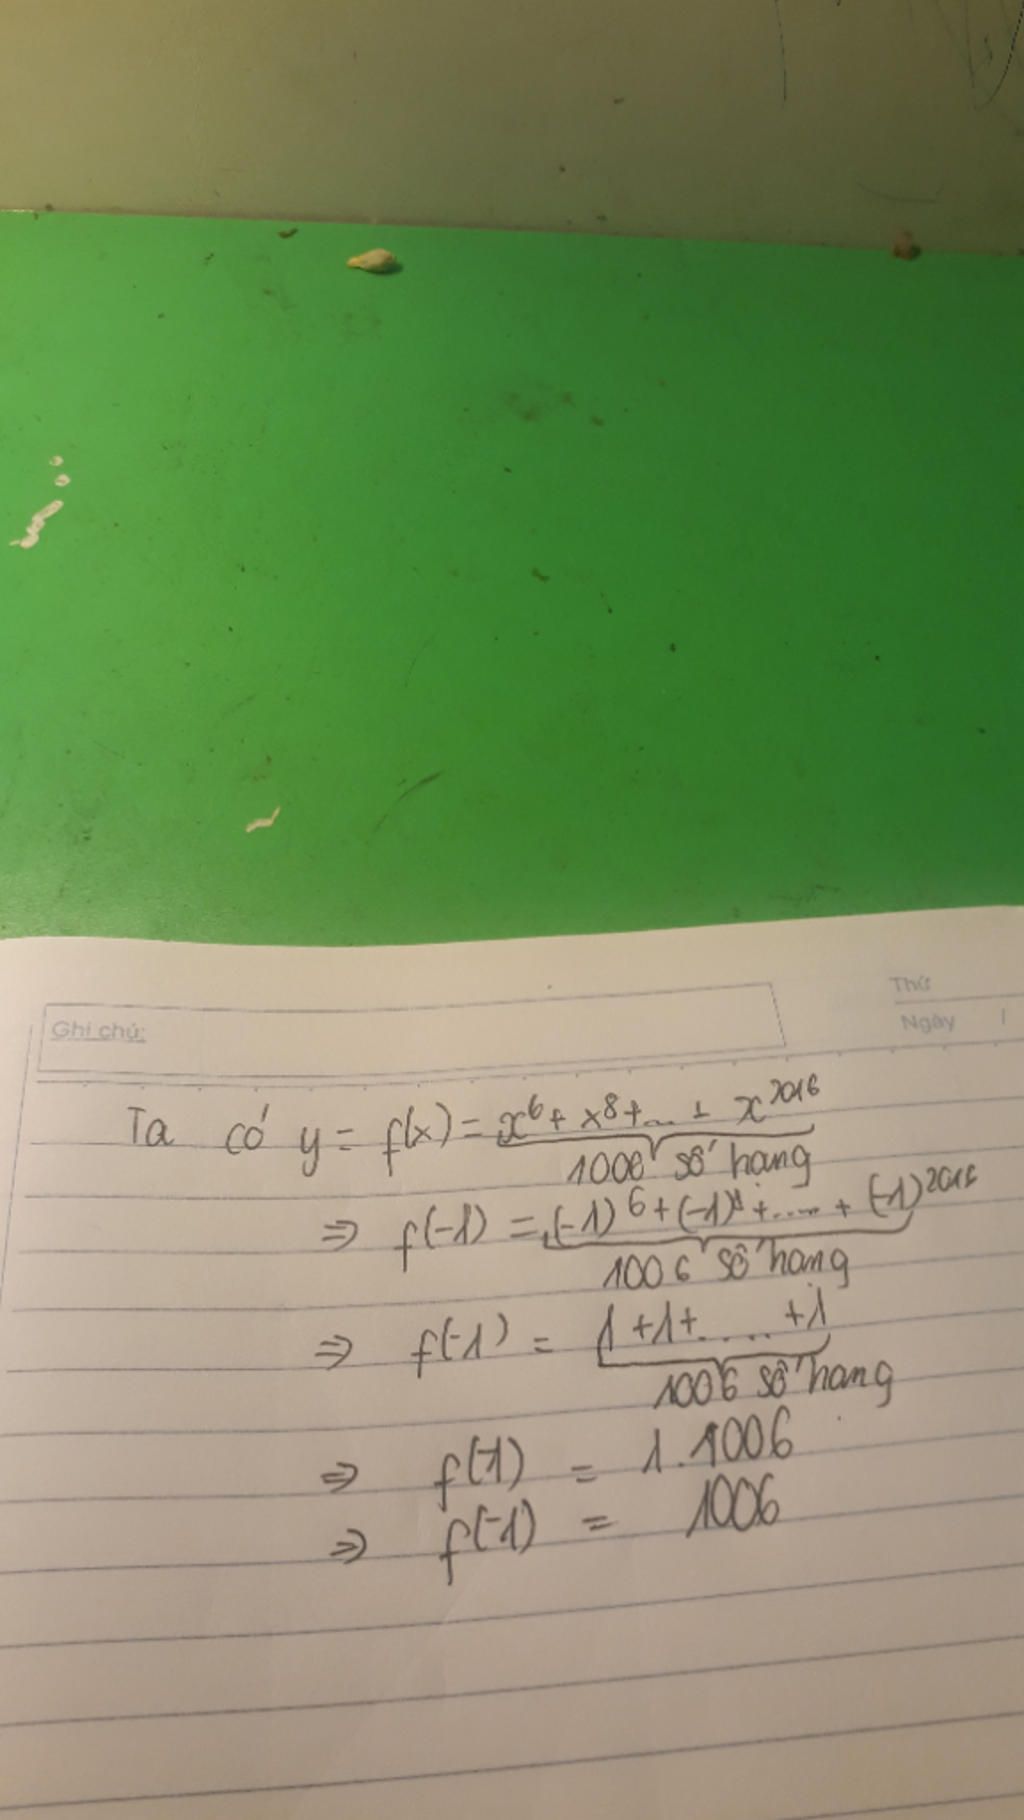 Thứ
Ghi chú:
Ngày /
Ta có y = f(x) = x^6 + x^8 + ... + x^2016
1006 số hạng
⇒ f(-1) = (-1)^6 + (-1)^8 + ..... + (-1)^2016
1006 số hạng
⇒ f(-1) = 1 + 1 + ..... + 1
1006 số hạng
⇒ f(-1) = 1.1006
⇒ f(-1) = 1006